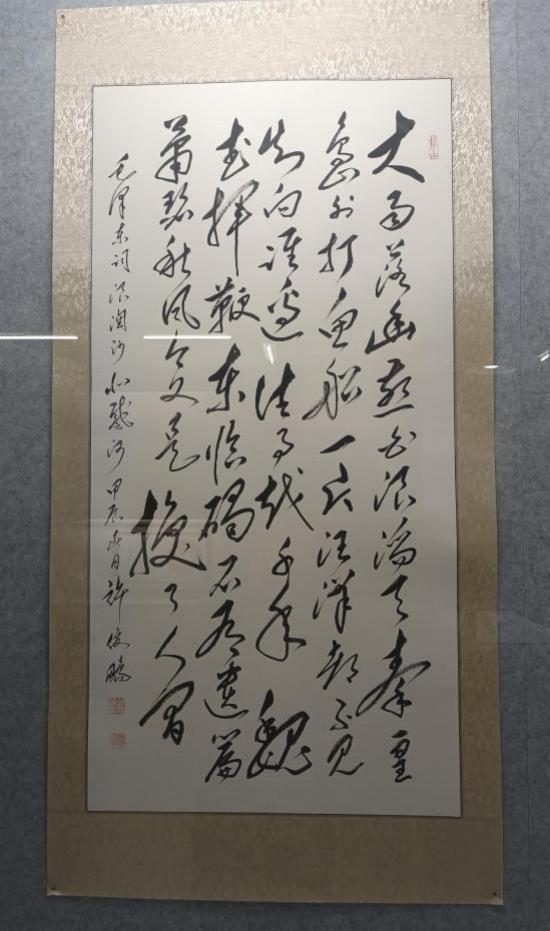 大雨落幽燕白浪滔天秦皇
岛外打鱼船一片汪洋都不见
知向谁边往事越千年魏
武挥鞭东临碣石有遗篇
萧瑟秋风今又是换了人间
毛泽东词浪淘沙北戴河甲辰春月许俊鹏